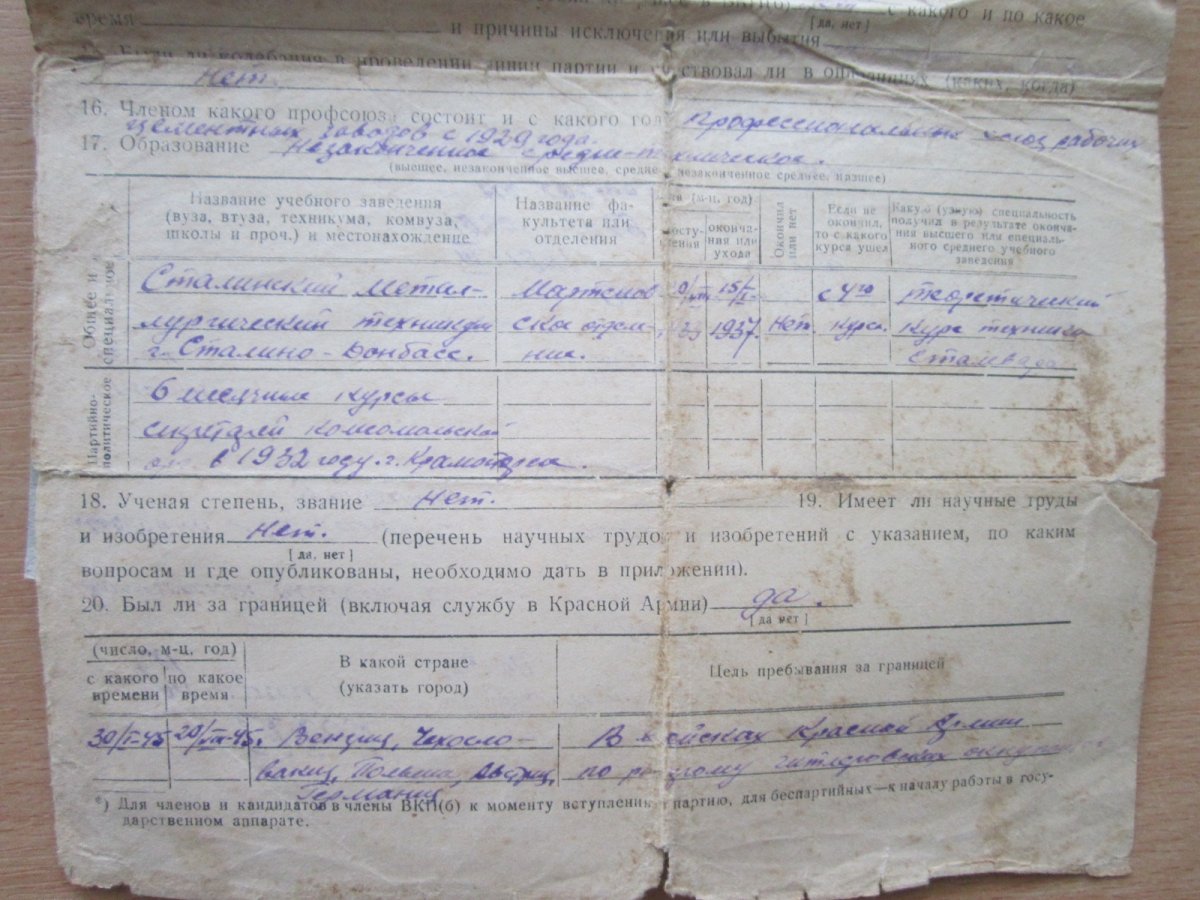 в ВКП(б) с какого и по какое
[да, нет]
время и причины исключения или выбытия
15. Были ли колебания в проведении линии партии и участвовал ли в оппозициях (каких, когда)
Нет.
16. Членом какого профсоюза состоит и с какого года Профессиональный союз рабочих
цементных заводов с 1929 года.
17. Образование Незаконченное средне-техническое.
(высшее, незаконченное высшее, среднее, незаконченное среднее, низшее)
Название учебного заведения (вуза, втуза, техникума, комвуза, школы и проч.) и местонахождение
Название факультета или отделения
(м-ц, год)
поступления
окончания или ухода
Окончил или нет
Если не окончил, то с какого курса ушел
Какую (узкую) специальность получил в результате окончания высшего или специального среднего учебного заведения
Общее и специальное
Сталинский метал- Мартенов 15/I- с 4го теоретический
лургический техникум ское отделе- 33 1937. Нет. курса. курс техника
г. Сталино-Донбасс. ние.
Партийно-политическое
6 месячные курсы
секретарей комсомольской
в 1932 году. г. Краматорск.
18. Ученая степень, звание Нет. 19. Имеет ли научные труды
и изобретения Нет. (перечень научных трудов и изобретений с указанием, по каким
[да, нет]
вопросам и где опубликованы, необходимо дать в приложении).
20. Был ли за границей (включая службу в Красной Армии) да.
[да нет]
(число, м-ц, год)
с какого времени
по какое время
В какой стране (указать город)
Цель пребывания за границей
30/I-45 20/VII-45. Венгрия, Чехосло- В войсках Красной Армии
вакия, Польша, Австрия, по разгрому гитлеровских оккупантов
Германия
*) Для членов и кандидатов в члены ВКП(б) к моменту вступления в партию, для беспартийных—к началу работы в госу-
дарственном аппарате.